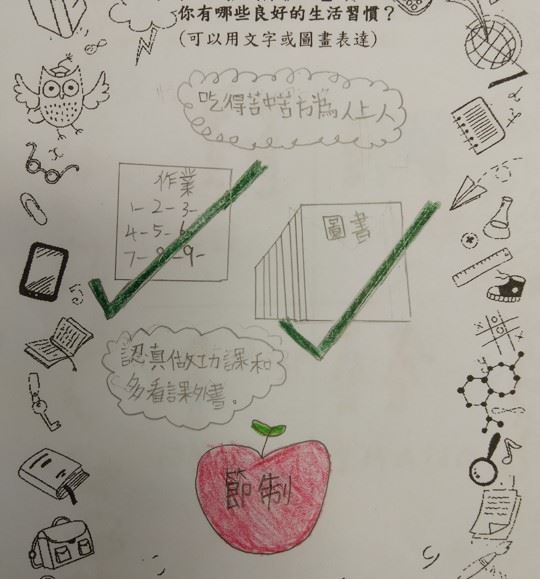 你有哪些良好的生活習慣？
(可以用文字或圖畫表達)
吃得苦中苦方為人上人
作業
1- 2- 3-
4- 5- 6-
7- 8- 9-
圖書
認真做功課和
多看課外書。
節制